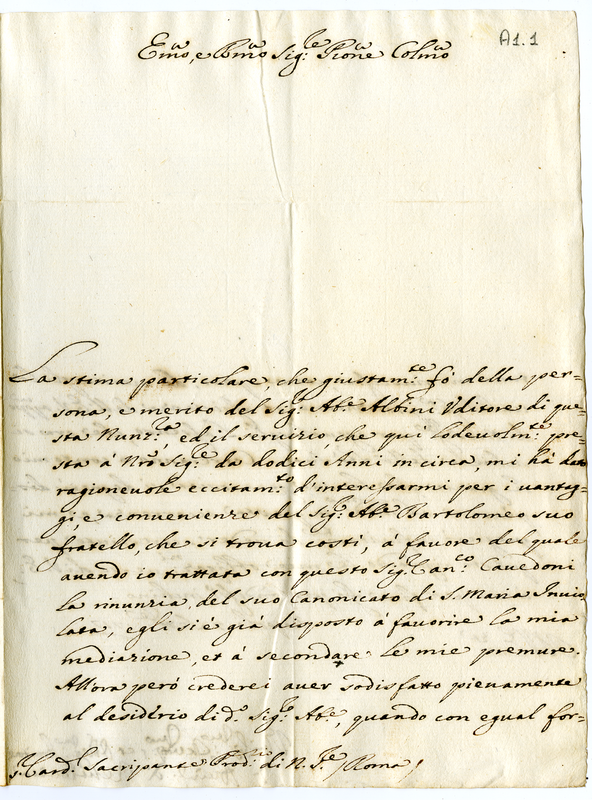 A1.1
Emo, e Rmo Sigr: Prone Colmo
La stima particolare, che giustamte: fò della per=
sona, e merito del Sigr: Abe: Albini Vditore di que=
sta Nunzra:, ed il seruizio, che quì lodeuolmte: pre=
sta à Nro Sigre: da dodici Anni in circa, mi hà dato
ragioneuole eccitamto: d'interessarmi per i uantag=
gi, e conuenienze del Sigr: Abe: Bartolomeo suo
fratello, che si troua costì, à fauore del quale
auendo io trattata con questo Sigr: Canco: Cauedoni
la rinunzia del suo Canonicato di S. Maria Inuio
lata, egli si è già disposto à fauorire la mia
mediazione, et à secondare le mie premure.
All'ora però crederei auer sodisfatto pienamente
al desiderio di do: Sigr: Abe:, quando con egual for=
s: Cardl: Sacripante Prod: di N. Sre: / Roma /